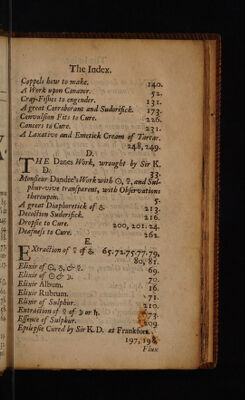 The Index.
Coppels how to make. 140.
A Work upon Canator. 52.
Cray-Fishes to engender. 131.
A great Corroborant and Sudorifick. 173.
Convulsion Fits to Cure. 226.
Cancers to Cure. 231.
A Laxative and Emetick Cream of Tartar.
248, 249.
D.
THE Danes Work, wrought by Sir K.
D. 33.
Monsieur Dandie's Work with ☉, ☿, and Sul-
phur-vive transparent, with Observations
thereupon. 5.
A great Diaphoretick of ♁. 213.
Decoction Sudorifick. 216.
Dropsie to Cure. 200, 201. 24.
Deafness to Cure. 262.
E.
EXtraction of ☿ of ♁ 65. 72. 75. 77. 79,
80, 81.
Elixir of ☉, ♁, & ☿. 69.
Elixir of ☉ & ☽. 70.
Elixir Album. 16.
Elixir Rubrum. 71.
Elixir of Sulphur. 210.
Extraction of ☿ of ☽ or ♄. 73.
Essence of Sulphur. 209
Epilepsie Cured by Sir K. D. at Frankfort.
197, 198.
Flux